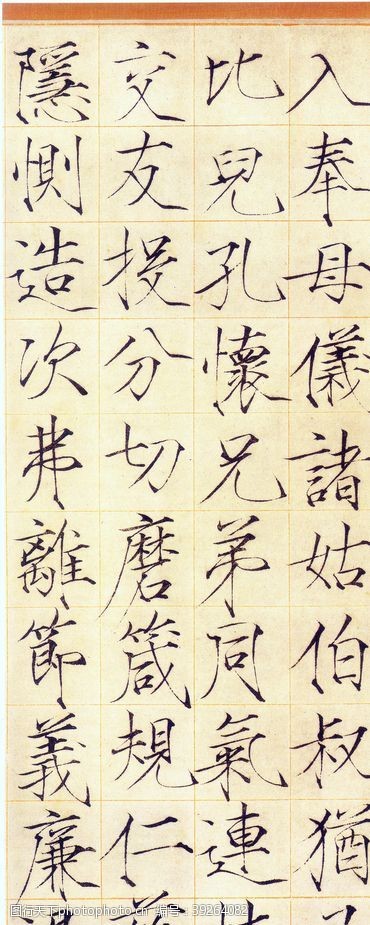 入奉母儀諸姑伯叔猶
比兒孔懷兄弟同氣連
交友投分切磨箴規仁
隱惻造次弗離節義廉
图行天下 photophoto.cn 编号：39264082